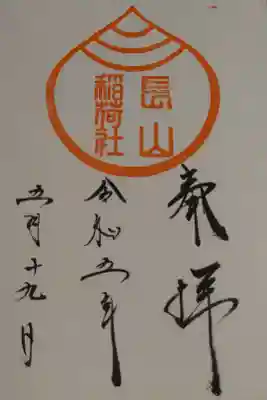 長山
稲荷社
奉拝
令和五年
五月十九日